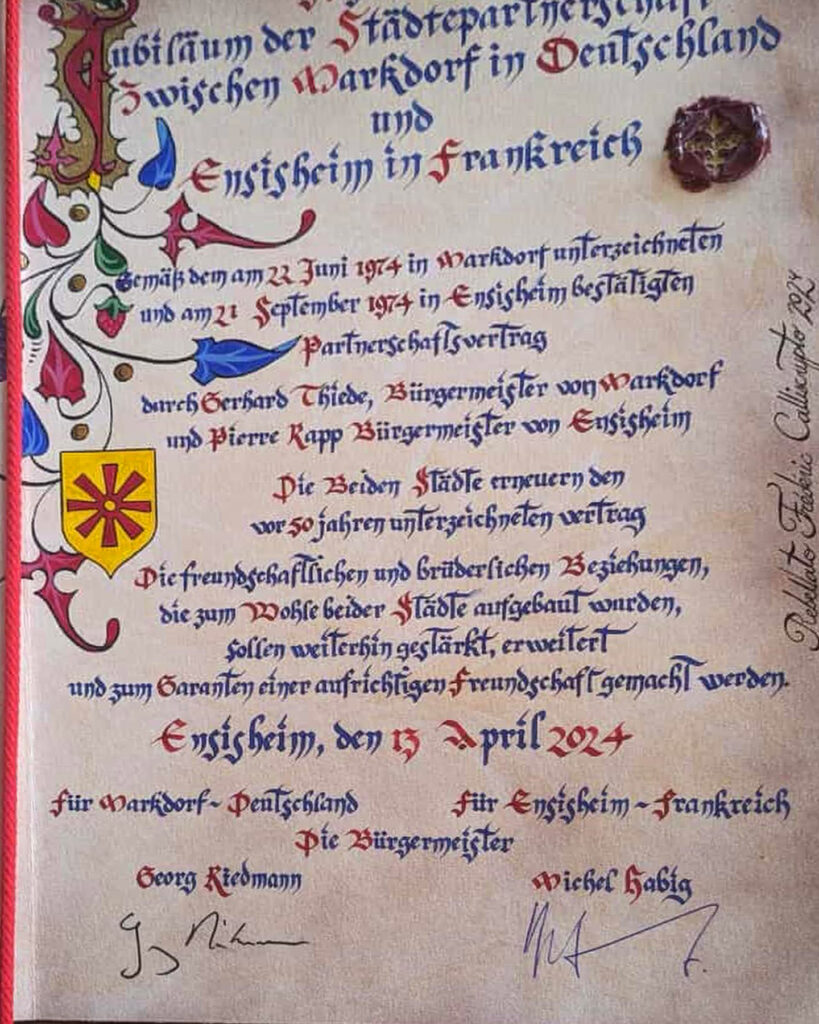 Jubiläum der Städtepartnerschaft
Zwischen Markdorf in Deutschland
und
Ensisheim in Frankreich
Gemäß dem am 22 Juni 1974 in Markdorf unterzeichneten
und am 21 September 1974 in Ensisheim bestätigten
Partnerschaftsvertrag
durch Gerhard Thiede, Bürgermeister von Markdorf
und Pierre Rapp Bürgermeister von Ensisheim
Die Beiden Städte erneuern den
vor 50 jahren unterzeichneten vertrag
Die freundschaftlichen und brüderlichen Beziehungen,
die zum Wohle beider Städte aufgebaut wurden,
sollen weiterhin gestärkt, erweitert
und zum Garanten einer aufrichtigen Freundschaft gemacht werden.
Ensisheim, den 13 April 2024
für Markdorf - Deutschland
Für Ensisheim - Frankreich
Die Bürgermeister
Georg Riedmann
Michel Habig
Rebellato Frédéric Calliscripto 2024